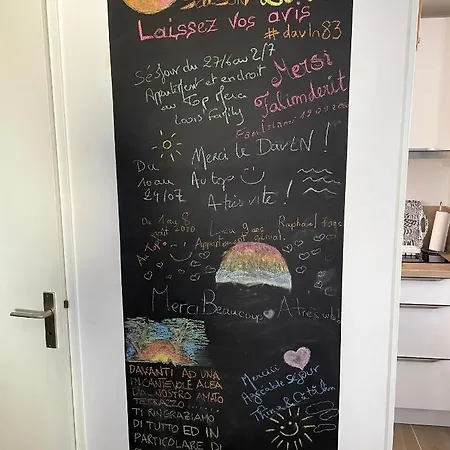 Laissez vos avis
#davln83
Séjour du 27/6 au 2/7
Appartement et endroit
au Top Merci
Louis' Family
Mersi
Talimderit
Du
10 au
24/07
Merci le DavLN !
Au top
A très vite !
Du 1 au 8
août 2020
9 ans
Raphael
Appartement génial.
Merci Beaucoup
A très
DAVANTI AD UNA
INCANTEVOLE ALBA
DAL NOSTRO AMATO
TERRAZZO
TI RINGRAZIAMO
DI TUTTO ED IN
PARTICOLARE DI
Merci
Agréable séjour